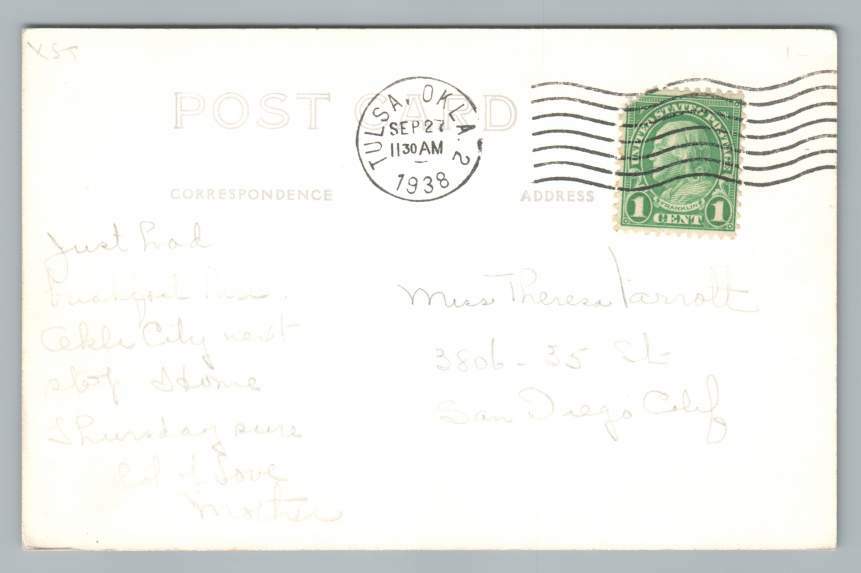 XST
POST CARD
TULSA, OKLA. 2
SEP 27
11 30 AM
1938
UNITED STATES POSTAGE
FRANKLIN
1 CENT 1
CORRESPONDENCE
ADDRESS
Just had
breakfast here.
Okla City next
stop Home
Thursday sure
Lot of Love
Mother
Miss Theresa
3806 - 35 St
San Diego Calif